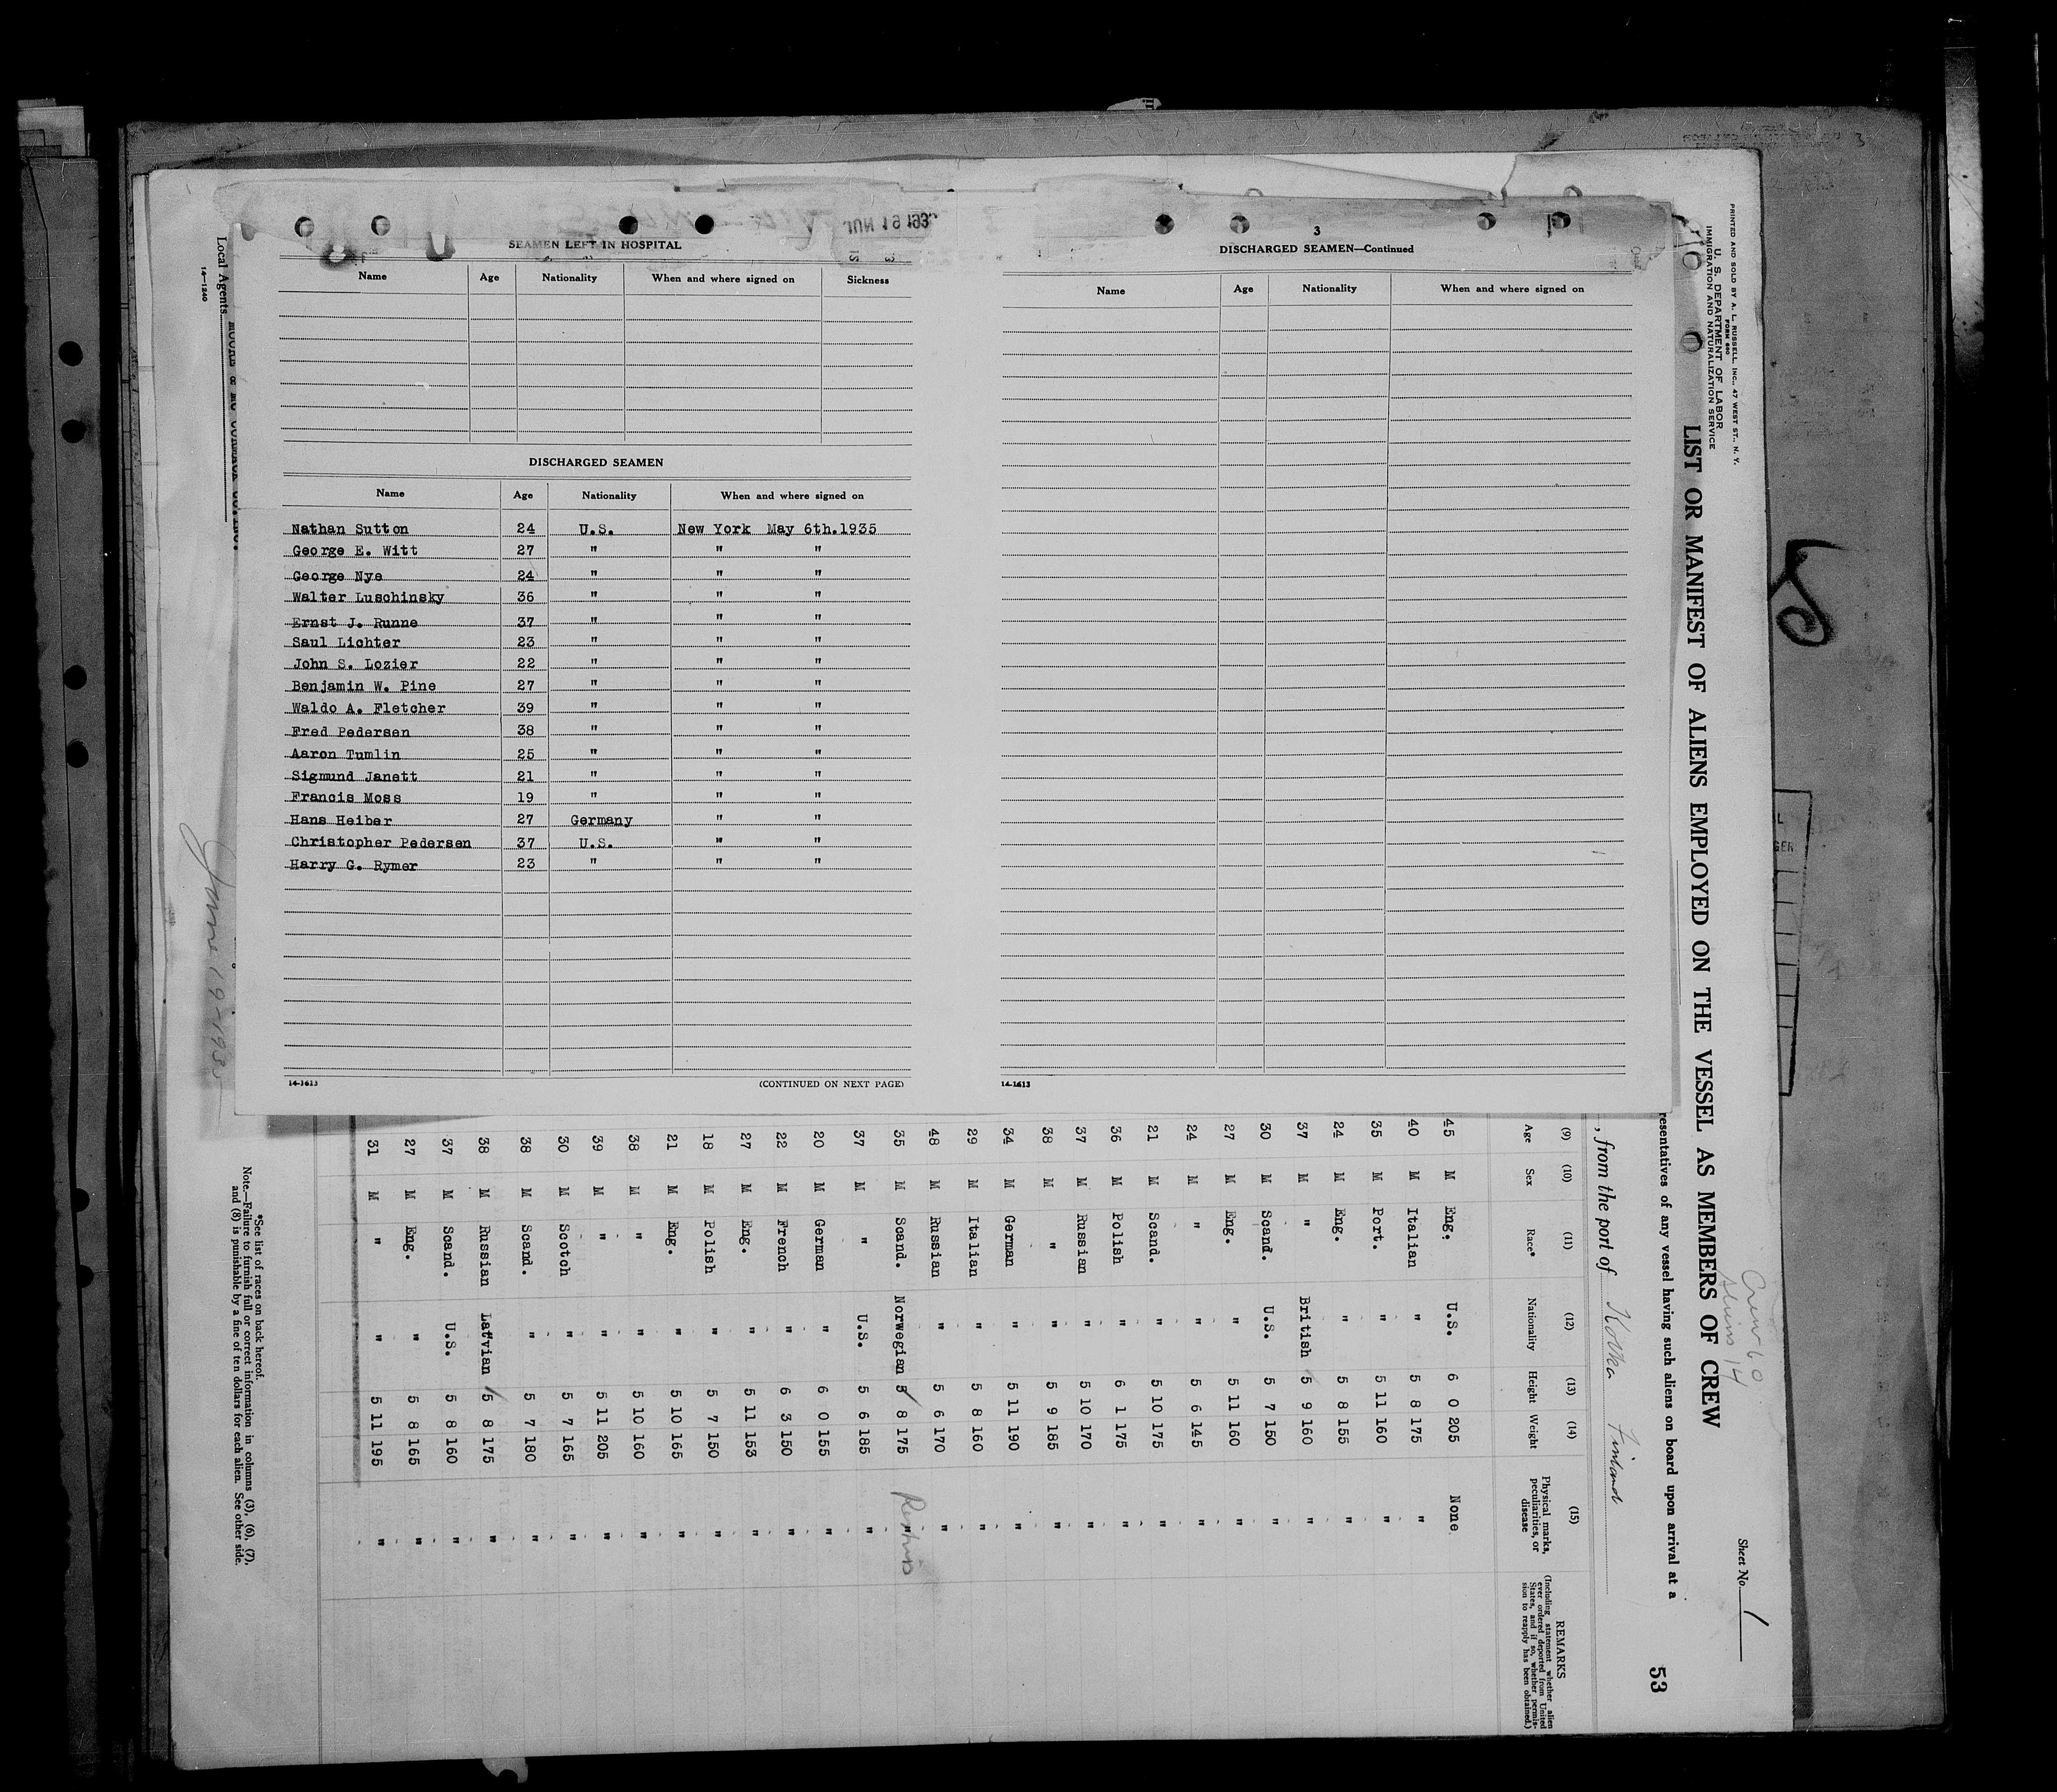 SEAMEN LEFT IN HOSPITAL
Name Age Nationality When and where signed on Sickness
DISCHARGED SEAMEN
Name Age Nationality When and where signed on
Nathan Sutton 24 U.S. New York May 6th.1935
George E. Witt 27 " " "
George Nye 24 " " "
Walter Luschinsky 36 " " "
Ernst J. Runne 37 " " "
Saul Lichter 23 " " "
John S. Lozier 22 " " "
Benjamin W. Pine 27 " " "
Waldo A. Fletcher 39 " " "
Fred Pedersen 38 " " "
Aaron Tumlin 25 " " "
Sigmund Janett 21 " " "
Francis Moss 19 " " "
Hans Heiber 27 Germany " "
Christopher Pedersen 37 U.S. " "
Harry G. Rymer 23 " " "
14-1613 (CONTINUED ON NEXT PAGE)
3
DISCHARGED SEAMEN—Continued
Name Age Nationality When and where signed on
14-1613
PRINTED AND SOLD BY A. L. RUSSELL, INC., 47 WEST ST., N. Y.
FORM 680
U. S. DEPARTMENT OF LABOR
IMMIGRATION AND NATURALIZATION SERVICE
Sheet No. 1
Crew 60
Aliens 14
LIST OR MANIFEST OF ALIENS EMPLOYED ON THE VESSEL AS MEMBERS OF CREW
resentatives of any vessel having such aliens on board upon arrival at a
53
, from the port of Kotka Finland
(9) (10) (11) (12) (13) (14) (15)
Age Sex Race* Nationality Height Weight Physical marks, peculiarities, or disease
REMARKS
(Including statement whether alien ever ordered deported from United States, and if so, whether permission to reapply has been obtained.)
45 M Eng. U.S. 6 0 205 None
40 M Italian " 5 8 175 "
35 M Port. " 5 11 160 "
24 M Eng. " 5 8 155 "
37 M " British 5 9 160 "
30 M Scand. U.S. 5 7 150 "
27 M Eng. " 5 11 160 "
24 M " " 5 6 145 "
21 M Scand. " 5 10 175 "
36 M Polish " 6 1 175 "
37 M Russian " 5 10 170 "
38 M " " 5 9 185 "
34 M German " 5 11 190 "
29 M Italian " 5 8 160 "
48 M Russian " 5 6 170 "
35 M Scand. Norwegian 5 8 175 "
37 M " U.S. 5 6 185 "
20 M German " 6 0 155 "
22 M French " 6 3 150 "
27 M Eng. " 5 11 153 "
18 M Polish " 5 7 150 "
21 M Eng. " 5 10 165 "
38 M " " 5 10 160 "
39 M " " 5 11 205 "
30 M Scotch " 5 7 165 "
38 M Scand. " 5 7 180 "
38 M Russian Latvian 5 8 175 "
37 M Scand. U.S. 5 8 160 "
27 M Eng. " 5 8 165 "
31 M " " 5 11 195 "
*See list of races on back hereof.
Note.—Failure to furnish full or correct information in columns (3), (6), (7),
and (8) is punishable by a fine of ten dollars for each alien. See other side.
Local Agents
14—1240
June 19-1935